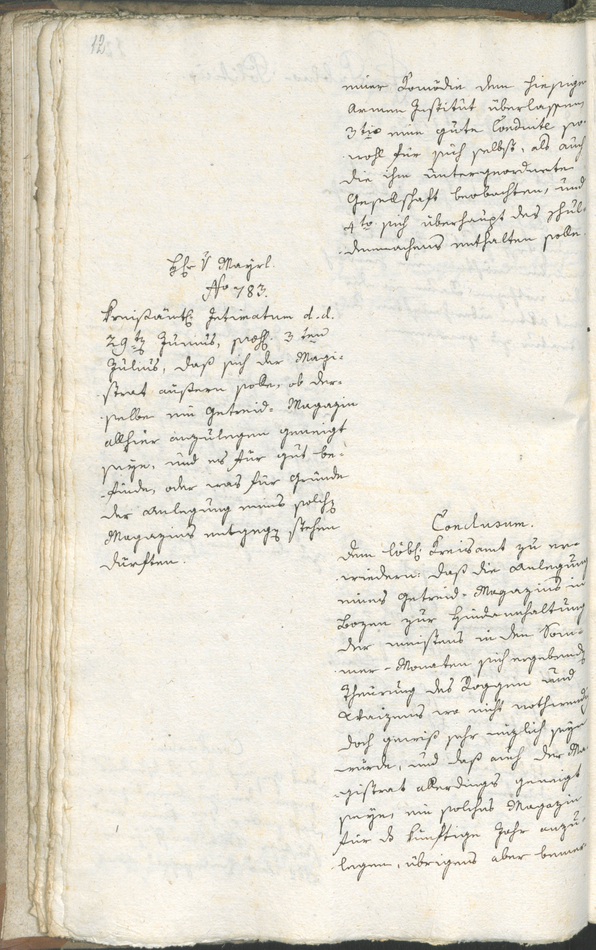 12.
einer Komödie dem hiesigen
Armen Institut überlassen,
3tio eine gute Conduite so-
wohl für sich selbst, als auch
die ihm untergeordnete
Gesellschaft beobachten, und
4to sich überhaupt des Schul-
denmachens enthalten solle.
H: v Mayrl.
No 783.
Kreisämtl: Intimatum d. d.
29ten Junius, 3ten
Julius, daß sich der Magi-
strat äußern solle, ob der-
selbe ein Getreid-Magazin
allhier anzulegen geneigt
seye, und es für gut be-
finde, oder was für Gründe
der Anlegung eines solch
Magazins entgeg stehen
dürften.
Conclusum.
Dem löbl: Kreisamt zu er-
wiedern: daß die Anlegung
eines Getreid-Magazins in
Bozen zur Hindanhaltung
der meistens in den Som-
mer-Monaten sich ergebend
Theürung des Roggen und
Waizens wo nicht nothwendig
doch gewiß sehr nüzlich seyn
würde, und daß auch der Ma-
gistrat allerdings geneigt
seye, ein solches Magazin
für d künftige Jahr anzu-
legen, übrigens aber bemer-